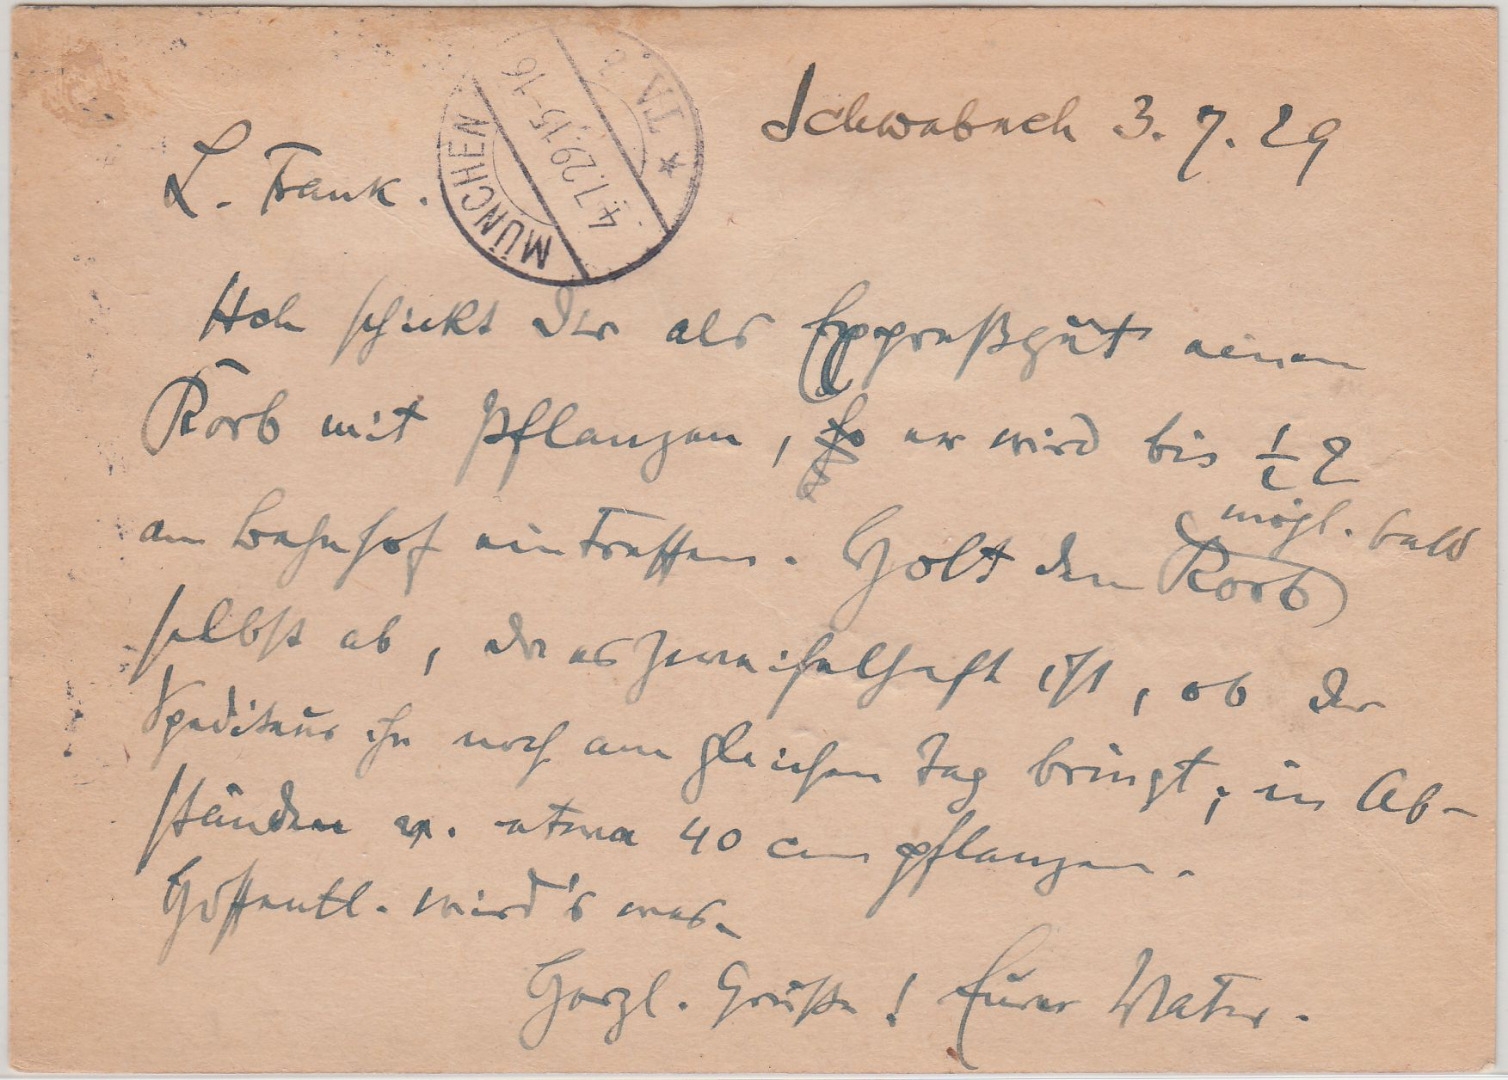 Schwabach 3.7.29
MÜNCHEN
4.7.29.15-16
L. Frank.
schickt Dir als Expreßgut einen
Korb mit Pflanzen, er wird bis ½ 2
am Bahnhof eintreffen. Holt den Korb mögl. bald
selbst ab, da es zweifelhaft ist, ob der
Spediteur ihn noch am gleichen Tag bringt; in Ab-
ständen v. etwa 40 cm pflanzen.
Hoffentl. wird's was.
Herzl. Grüße! Euer Vater.